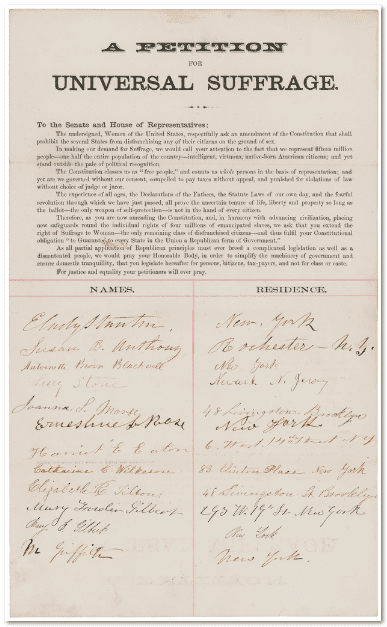 A PETITION
FOR
UNIVERSAL SUFFRAGE.
To the Senate and House of Representatives:
The undersigned, Women of the United States, respectfully ask an amendment of the Constitution that shall
prohibit the several States from disfranchising any of their citizens on the ground of sex.
In making our demand for Suffrage, we would call your attention to the fact that we represent fifteen million
people—one half the entire population of the country—intelligent, virtuous, native-born American citizens; and yet
stand outside the pale of political recognition.
The Constitution classes us as "free people," and counts us whole persons in the basis of representation; and
yet are we governed without our consent, compelled to pay taxes without appeal, and punished for violations of law
without choice of judge or juror.
The experience of all ages, the Declarations of the Fathers, the Statute Laws of our own day, and the fearful
revolution through which we have just passed, all prove the uncertain tenure of life, liberty and property so long as
the ballot—the only weapon of self-protection—is not in the hand of every citizen.
Therefore, as you are now amending the Constitution, and, in harmony with advancing civilization, placing
new safeguards round the individual rights of four millions of emancipated slaves, we ask that you extend the
right of Suffrage to Woman—the only remaining class of disfranchised citizens—and thus fulfil your Constitutional
obligation "to Guarantee to every State in the Union a Republican form of Government."
As all partial application of Republican principles must ever breed a complicated legislation as well as a
discontented people, we would pray your Honorable Body, in order to simplify the machinery of government and
ensure domestic tranquility, that you legislate hereafter for persons, citizens, tax-payers, and not for class or caste.
For justice and equality your petitioners will ever pray.
NAMES. RESIDENCE.
E Cady Stanton, New York
Susan B. Anthony Rochester - N.Y.
Antoinette Brown Blackwell New York
Lucy Stone Newark N. Jersey
Joanna S. Morse 48 Livingston. Brooklyn
Ernestine L Rose New York
Harriet E. Eaton 6. West. 14th Street N.Y
Catharine C Wilkeson 83 Clinton Place New York
Elizabeth R Tilton 48 Livingston St. Brooklyn
Mary Fowler Gilbert 293 W. 19th St. New York
Gilbert New York
M Griffith New York.